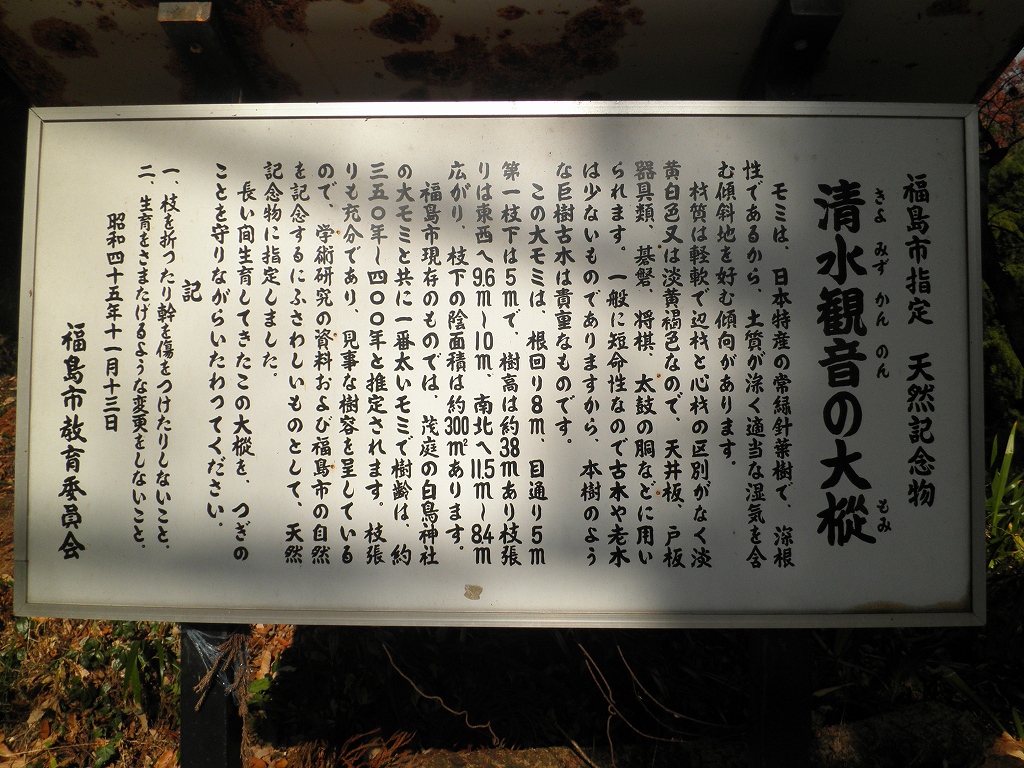 福島市指定　天然記念物
清水観音の大樅
きよ みず かん のん もみ
モミは、日本特産の常緑針葉樹で、深根
性であるから、土質が深く適当な湿気を含
む傾斜地を好む傾向があります。
材質は軽軟で辺材と心材の区別がなく淡
黄白色又は淡黄褐色なので、天井板、戸板
器具類、碁磐、将棋、太鼓の胴などに用い
られます。一般に短命性なので古木や老木
は少ないものでありますから、本樹のよう
な巨樹古木は貴重なものです。
この大モミは、根回り8m、目通り5m
第一枝下は5mで、樹高は約38mあり枝張
りは東西へ9.6m〜10m、南北へ11.5m〜8.4m
広がり、枝下の陰面積は約300㎡あります。
福島市現存のものでは、茂庭の白鳥神社
の大モミと共に一番太いモミで樹齢は、約
三五〇年〜四〇〇年と推定されます。枝張
りも充分であり、見事な樹容を呈している
ので、学術研究の資料および福島市の自然
を記念するにふさわしいものとして、天然
記念物に指定しました。
長い間生育してきたこの大樅を、つぎの
ことを守りながらいたわってください。
記
一、枝を折つたり幹を傷をつけたりしないこと。
二、生育をさまたげるような変更をしないこと。
昭和四十五年十一月十三日
福島市教育委員会